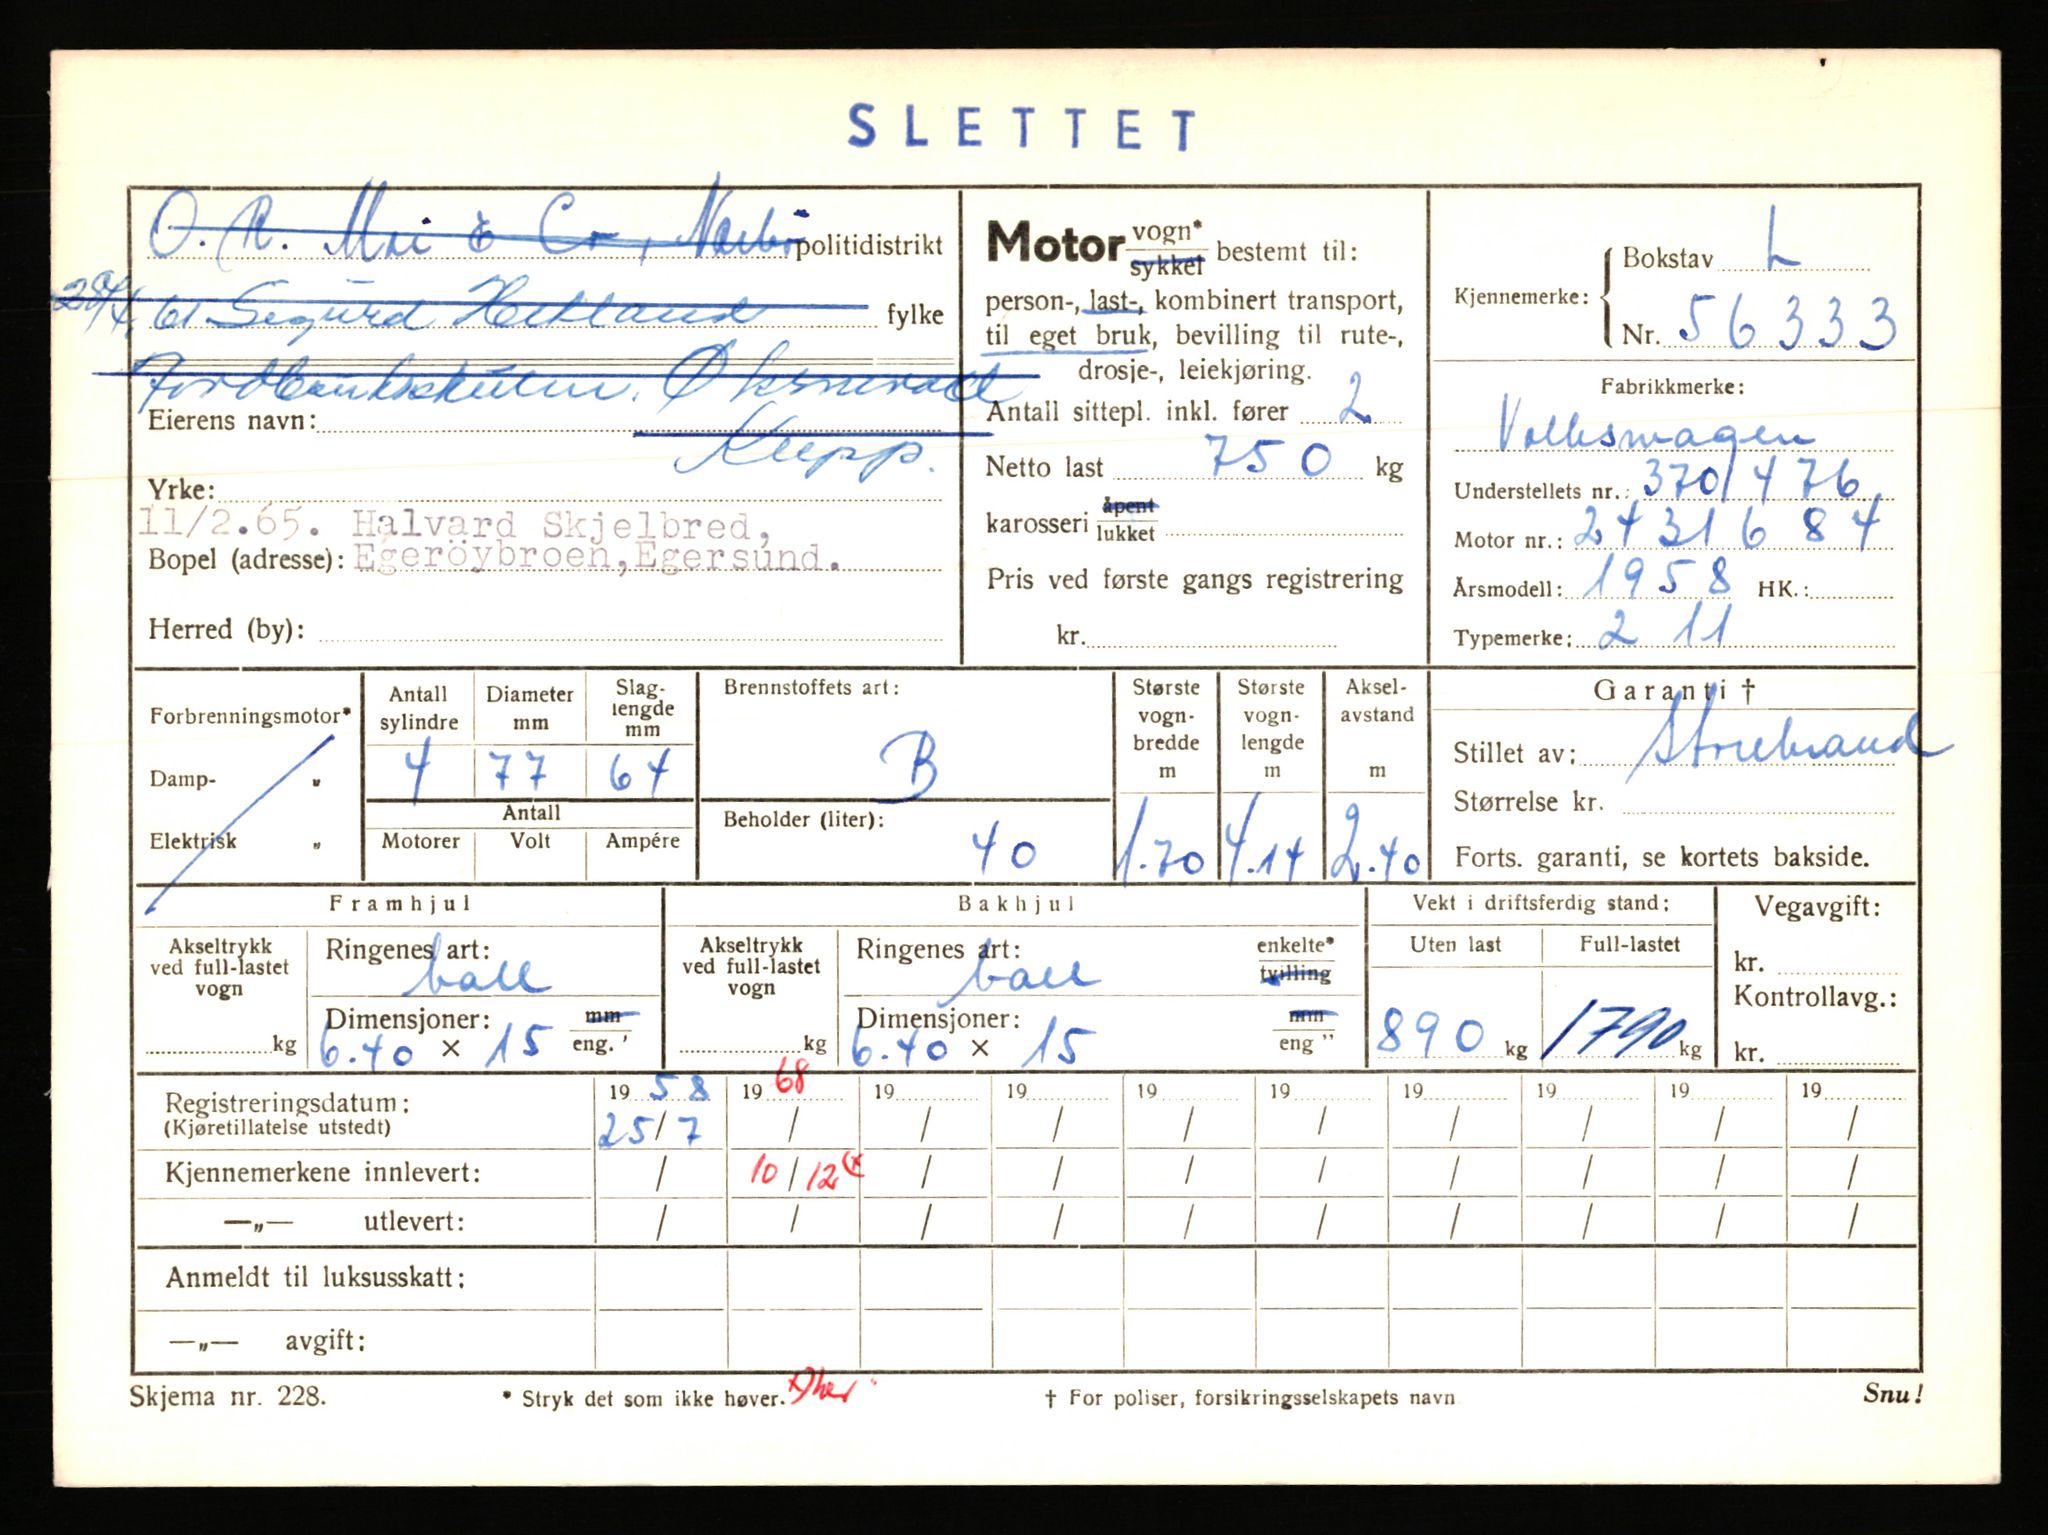 SLETTET
O. R. & Co, Nærbø politidistrikt
28/4 61 Sigurd fylke
Jordbruksskulen. Øksnevad
Eierens navn:
Klepp.
Yrke:
11/2.65. Halvard Skjelbred,
Bopel (adresse): Egeröybroen, Egersund.
Herred (by):
Motor vogn* sykkel bestemt til:
person-, last-, kombinert transport,
til eget bruk, bevilling til rute-,
drosje-, leiekjøring.
Antall sittepl. inkl. fører 2
Netto last 750 kg
karosseri åpent lukket
Pris ved første gangs registrering
kr.
Kjennemerke: Bokstav L
Nr. 56333
Fabrikkmerke:
Volkswagen
Understellets nr.: 370/476
Motor nr.: 2431684
Årsmodell: 1958 HK.:
Typemerke: 211
Forbrenningsmotor*
Damp- „
Elektrisk „
Antall sylindre 4
Diameter mm 77
Slag-lengde mm 64
Antall
Motorer Volt Ampére
Brennstoffets art:
B
Beholder (liter):
40
Største vogn-bredde m 1.70
Største vogn-lengde m 4.14
Aksel-avstand m 2.40
Garanti †
Stillet av: Storebrand
Størrelse kr.
Forts. garanti, se kortets bakside.
Framhjul
Akseltrykk ved full-lastet vogn
kg
Ringenes art:
ball
Dimensjoner: mm
6.40 × 15 eng. '
Bakhjul
Akseltrykk ved full-lastet vogn
kg
Ringenes art: enkelte*
ball tvilling
Dimensjoner: mm
6.40 × 15 eng "
Vekt i driftsferdig stand:
Uten last Full-lastet
890 kg 1790 kg
Vegavgift:
kr.
Kontrollavg.:
kr.
Registreringsdatum: 19 58 19 68 19 19 19 19 19 19 19 19
(Kjøretillatelse utstedt) 25/7 / / / / / / / / /
Kjennemerkene innlevert: / 10/12 (x / / / / / / / /
—„— utlevert: / / / / / / / / / /
Anmeldt til luksusskatt:
—„— avgift:
Skjema nr. 228. * Stryk det som ikke høver. † For poliser, forsikringsselskapets navn Snu!